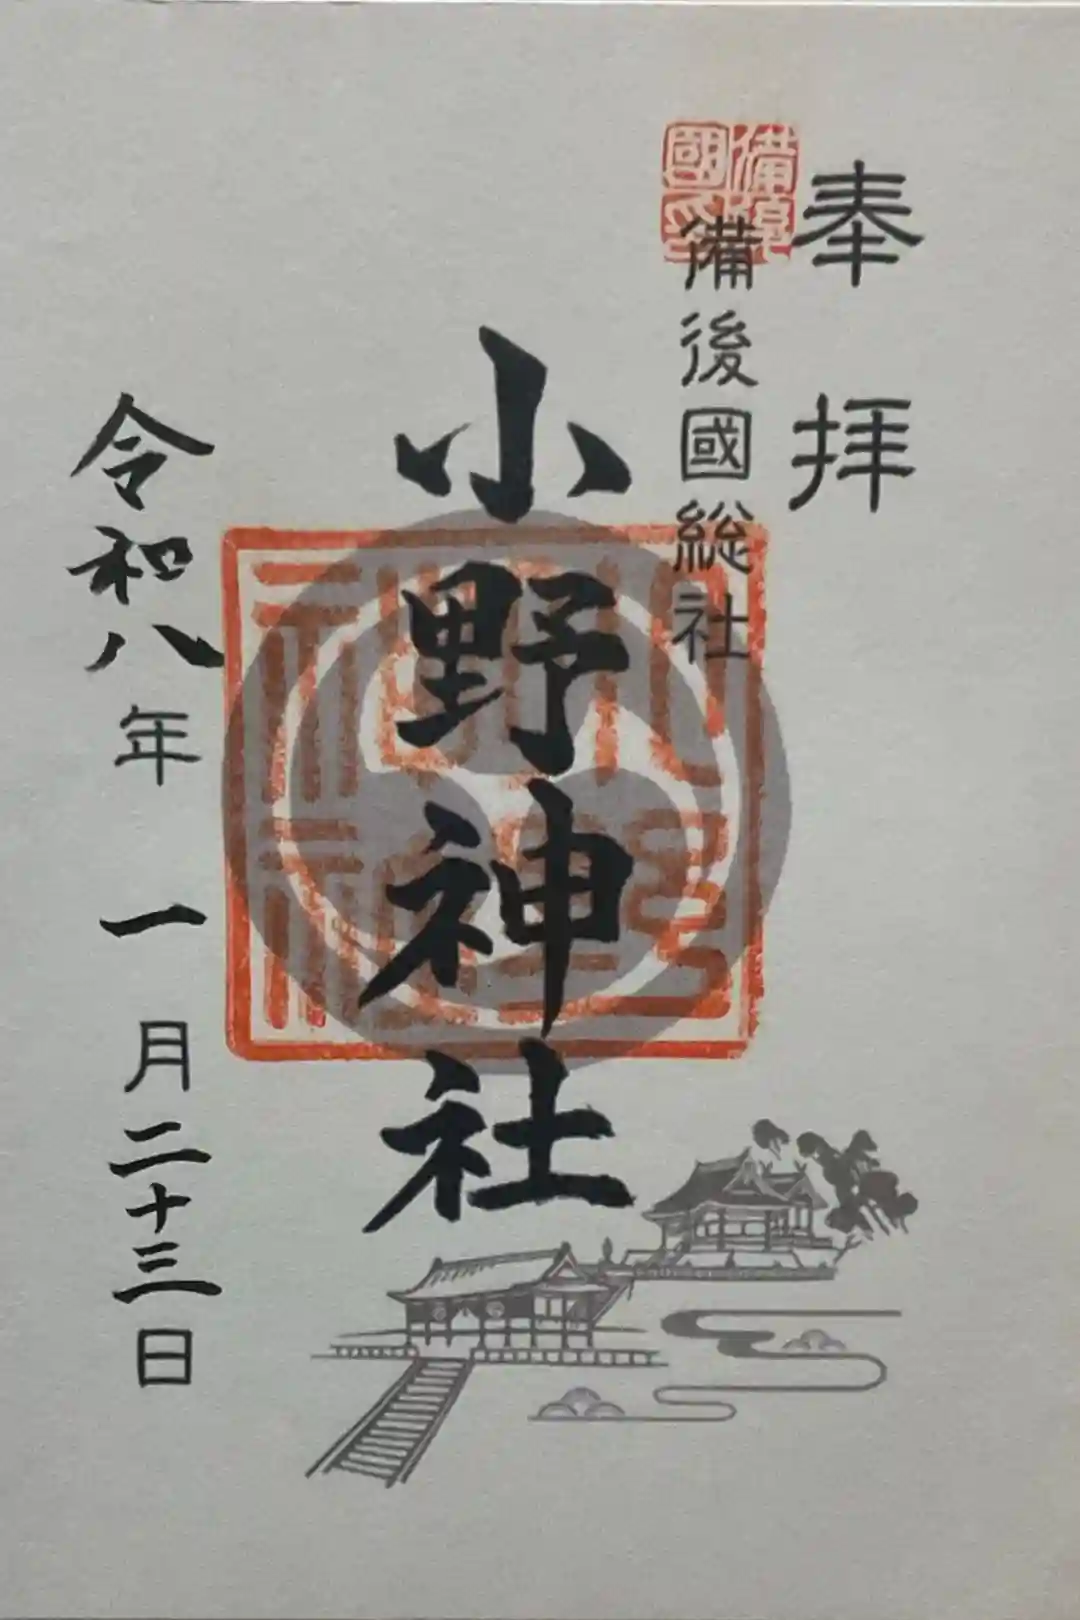 奉拝
備後國総社
備後國印
小野神社
令和八年一月二十三日